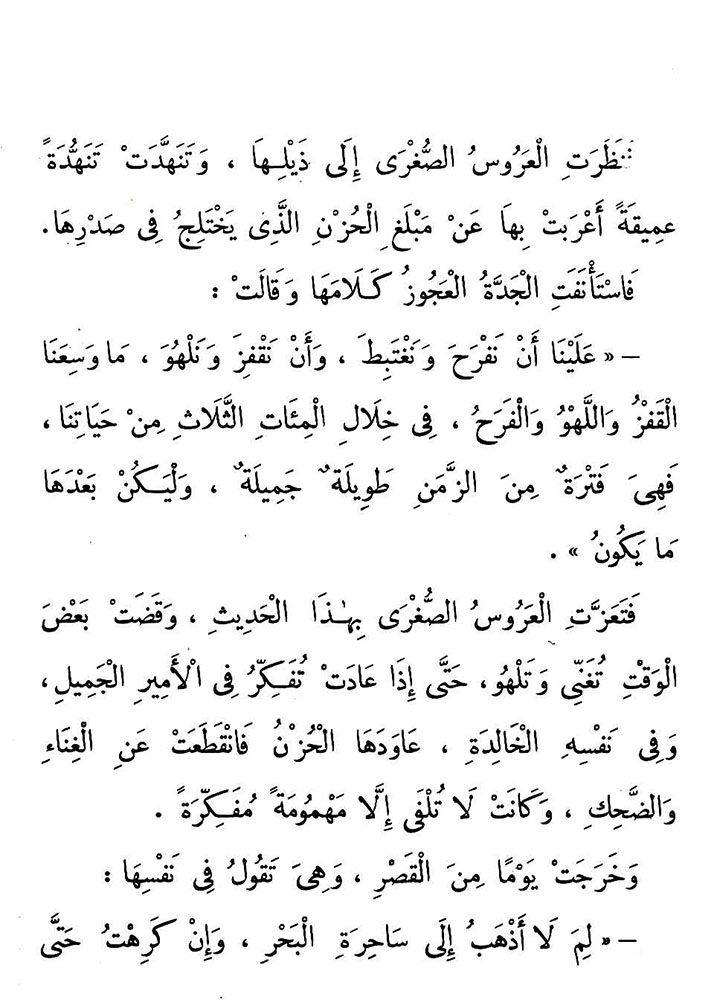 نَظَرَتِ الْعَرُوسُ الصُّغْرَى إِلَى ذَيْلِهَا ، وَتَنَهَّدَتْ تَنَهُّدَةً
عمِيقَةً أَعْرَبَتْ بِهَا عَنْ مَبْلَغِ الْحُزْنِ الَّذِى يَخْتَلِجُ فِى صَدْرِهَا.
فَاسْتَأْنَفَتِ الْجَدَّةُ الْعَجُوزُ كَلَامَهَا وَقَالَتْ :
– « عَلَيْنَا أَنْ نَفْرَحَ وَنَغْتَبِطَ ، وَأَنْ نَقْفِزَ وَنَلْهُوَ ، مَا وَسِعَنَا
الْقَفْزُ وَاللَّهْوُ وَالْفَرَحُ ، فِى خِلَالِ الْمِئَاتِ الثَّلَاثِ مِنْ حَيَاتِنَا ،
فَهِىَ فَتْرَةٌ مِنَ الزَّمَنِ طَوِيلَةٌ جَمِيلَةٌ ، وَلْيَكُنْ بَعْدَهَا
مَا يَكُونُ » .
فَتَعَزَّتِ الْعَرُوسُ الصُّغْرَى بِهٰذَا الْحَدِيثِ ، وَقَضَتْ بَعْضَ
الْوَقْتِ تُغَنِّى وَتَلْهُو، حَتَّى إِذَا عَادَتْ تُفَكِّرُ فِى الْأَمِيرِ الْجَمِيلِ ،
وَفِى نَفْسِهِ الْخَالِدَةِ ، عَاوَدَهَا الْحُزْنُ فَانْقَطَعَتْ عَنِ الْغِنَاءِ
وَالضَّحِكِ ، وَكَانَتْ لَا تُلْفَى إِلَّا مَهْمُومَةً مُفَكِّرَةً .
وَخَرَجَتْ يَوْمًا مِنَ الْقَصْرِ ، وَهِىَ تَقُولُ فِى نَفْسِهَا :
– « لِمَ لَا أَذْهَبُ إِلَى سَاحِرَةِ الْبَحْرِ ، وَإِنْ كَرِهْتُ حَتَّى